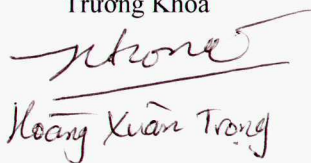 Trưởng Khoa
Hoàng Xuân Trọng